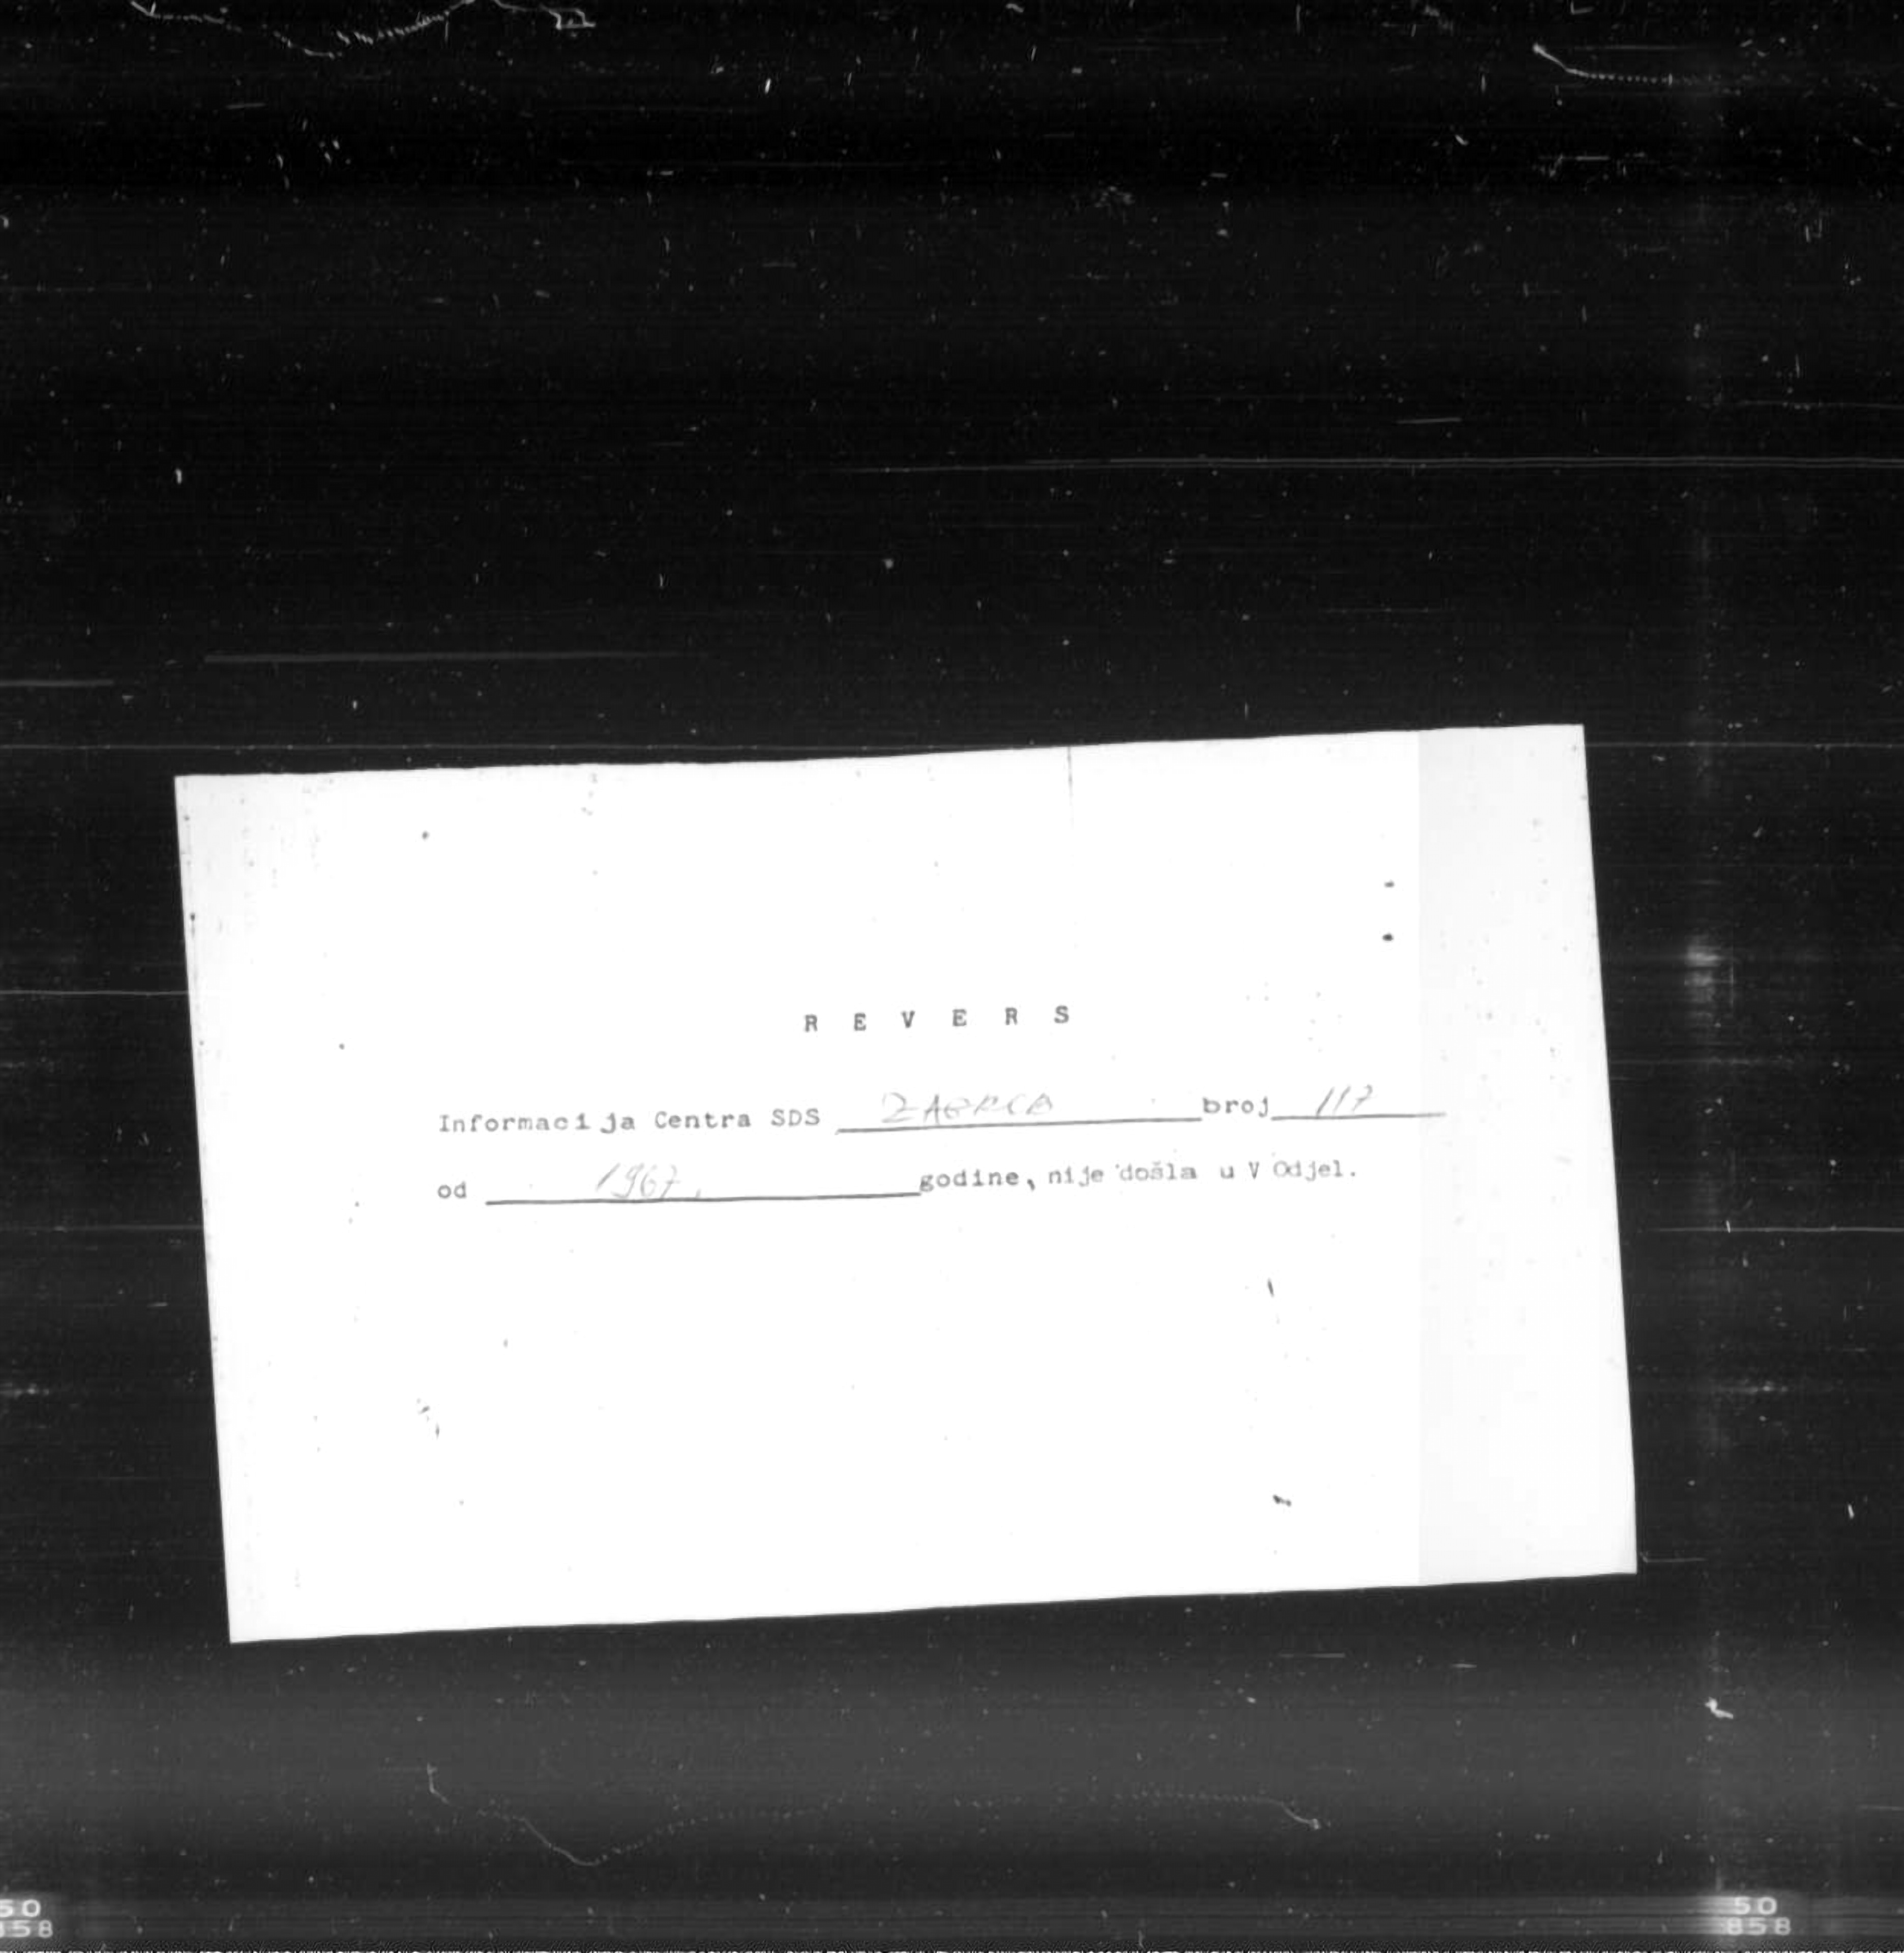 R E V E R S
Informacija Centra SDS ZAGREB broj 117
od 1967. godine, nije došla u V Odjel.
50 50
858 858